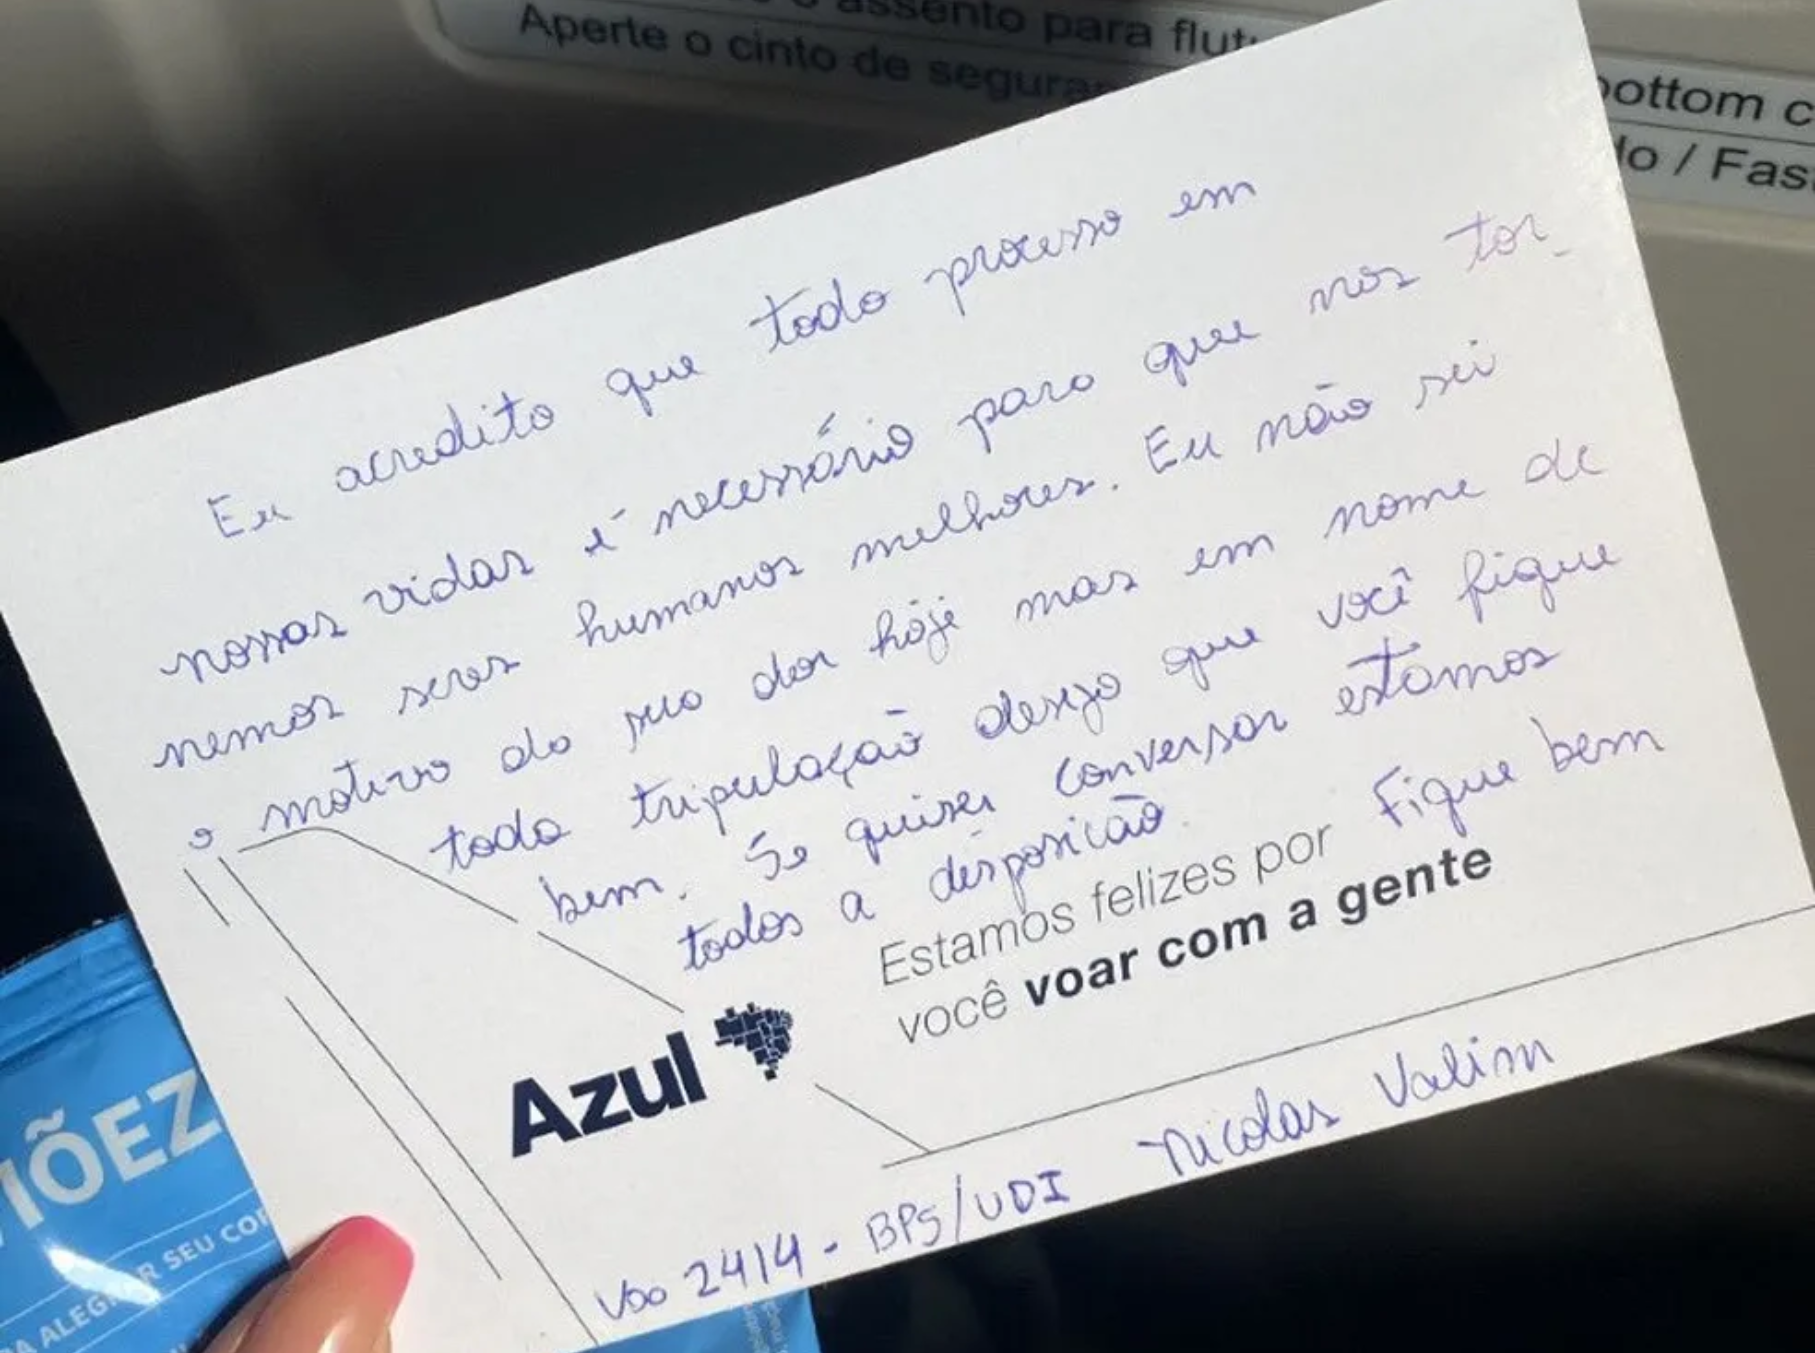 assento para flut
Aperte o cinto de seguran
bottom c
do / Fast
Eu acredito que todo processo em
nossas vidas é necessário para que nos tor_
nemos seres humanos melhores. Eu não sei
o motivo da sua dor hoje mas em nome de
toda tripulação desejo que você fique
bem. Se quiser conversar estamos
todos a desposicão. Fique bem
Estamos felizes por
você voar com a gente
Azul
Voo 2414 - BPS/UDI Nicolas Valim
IÕEZ
A ALEGRAR SEU COR